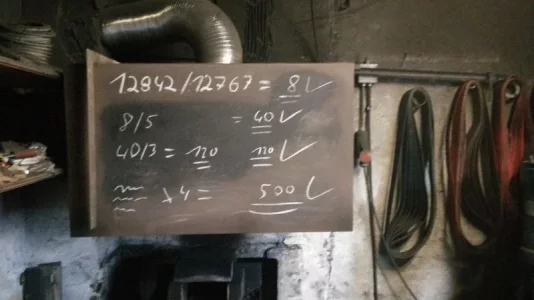 12842/12767 = 8
8/5 = 40
40/3 = 120 120
x 4 = 500